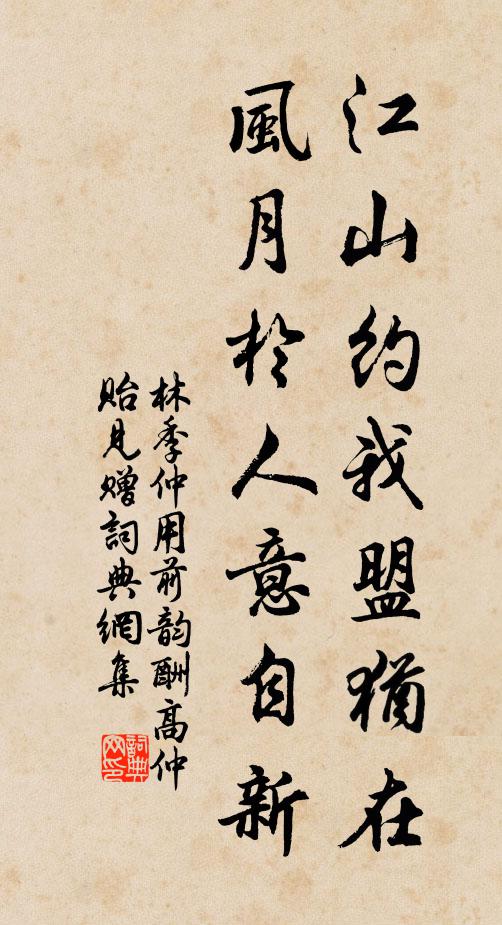 江山約我盟猶在
風月於人意自新
林季仲用前韵酬高仲
貽見贈詞典網集
詞典
网印